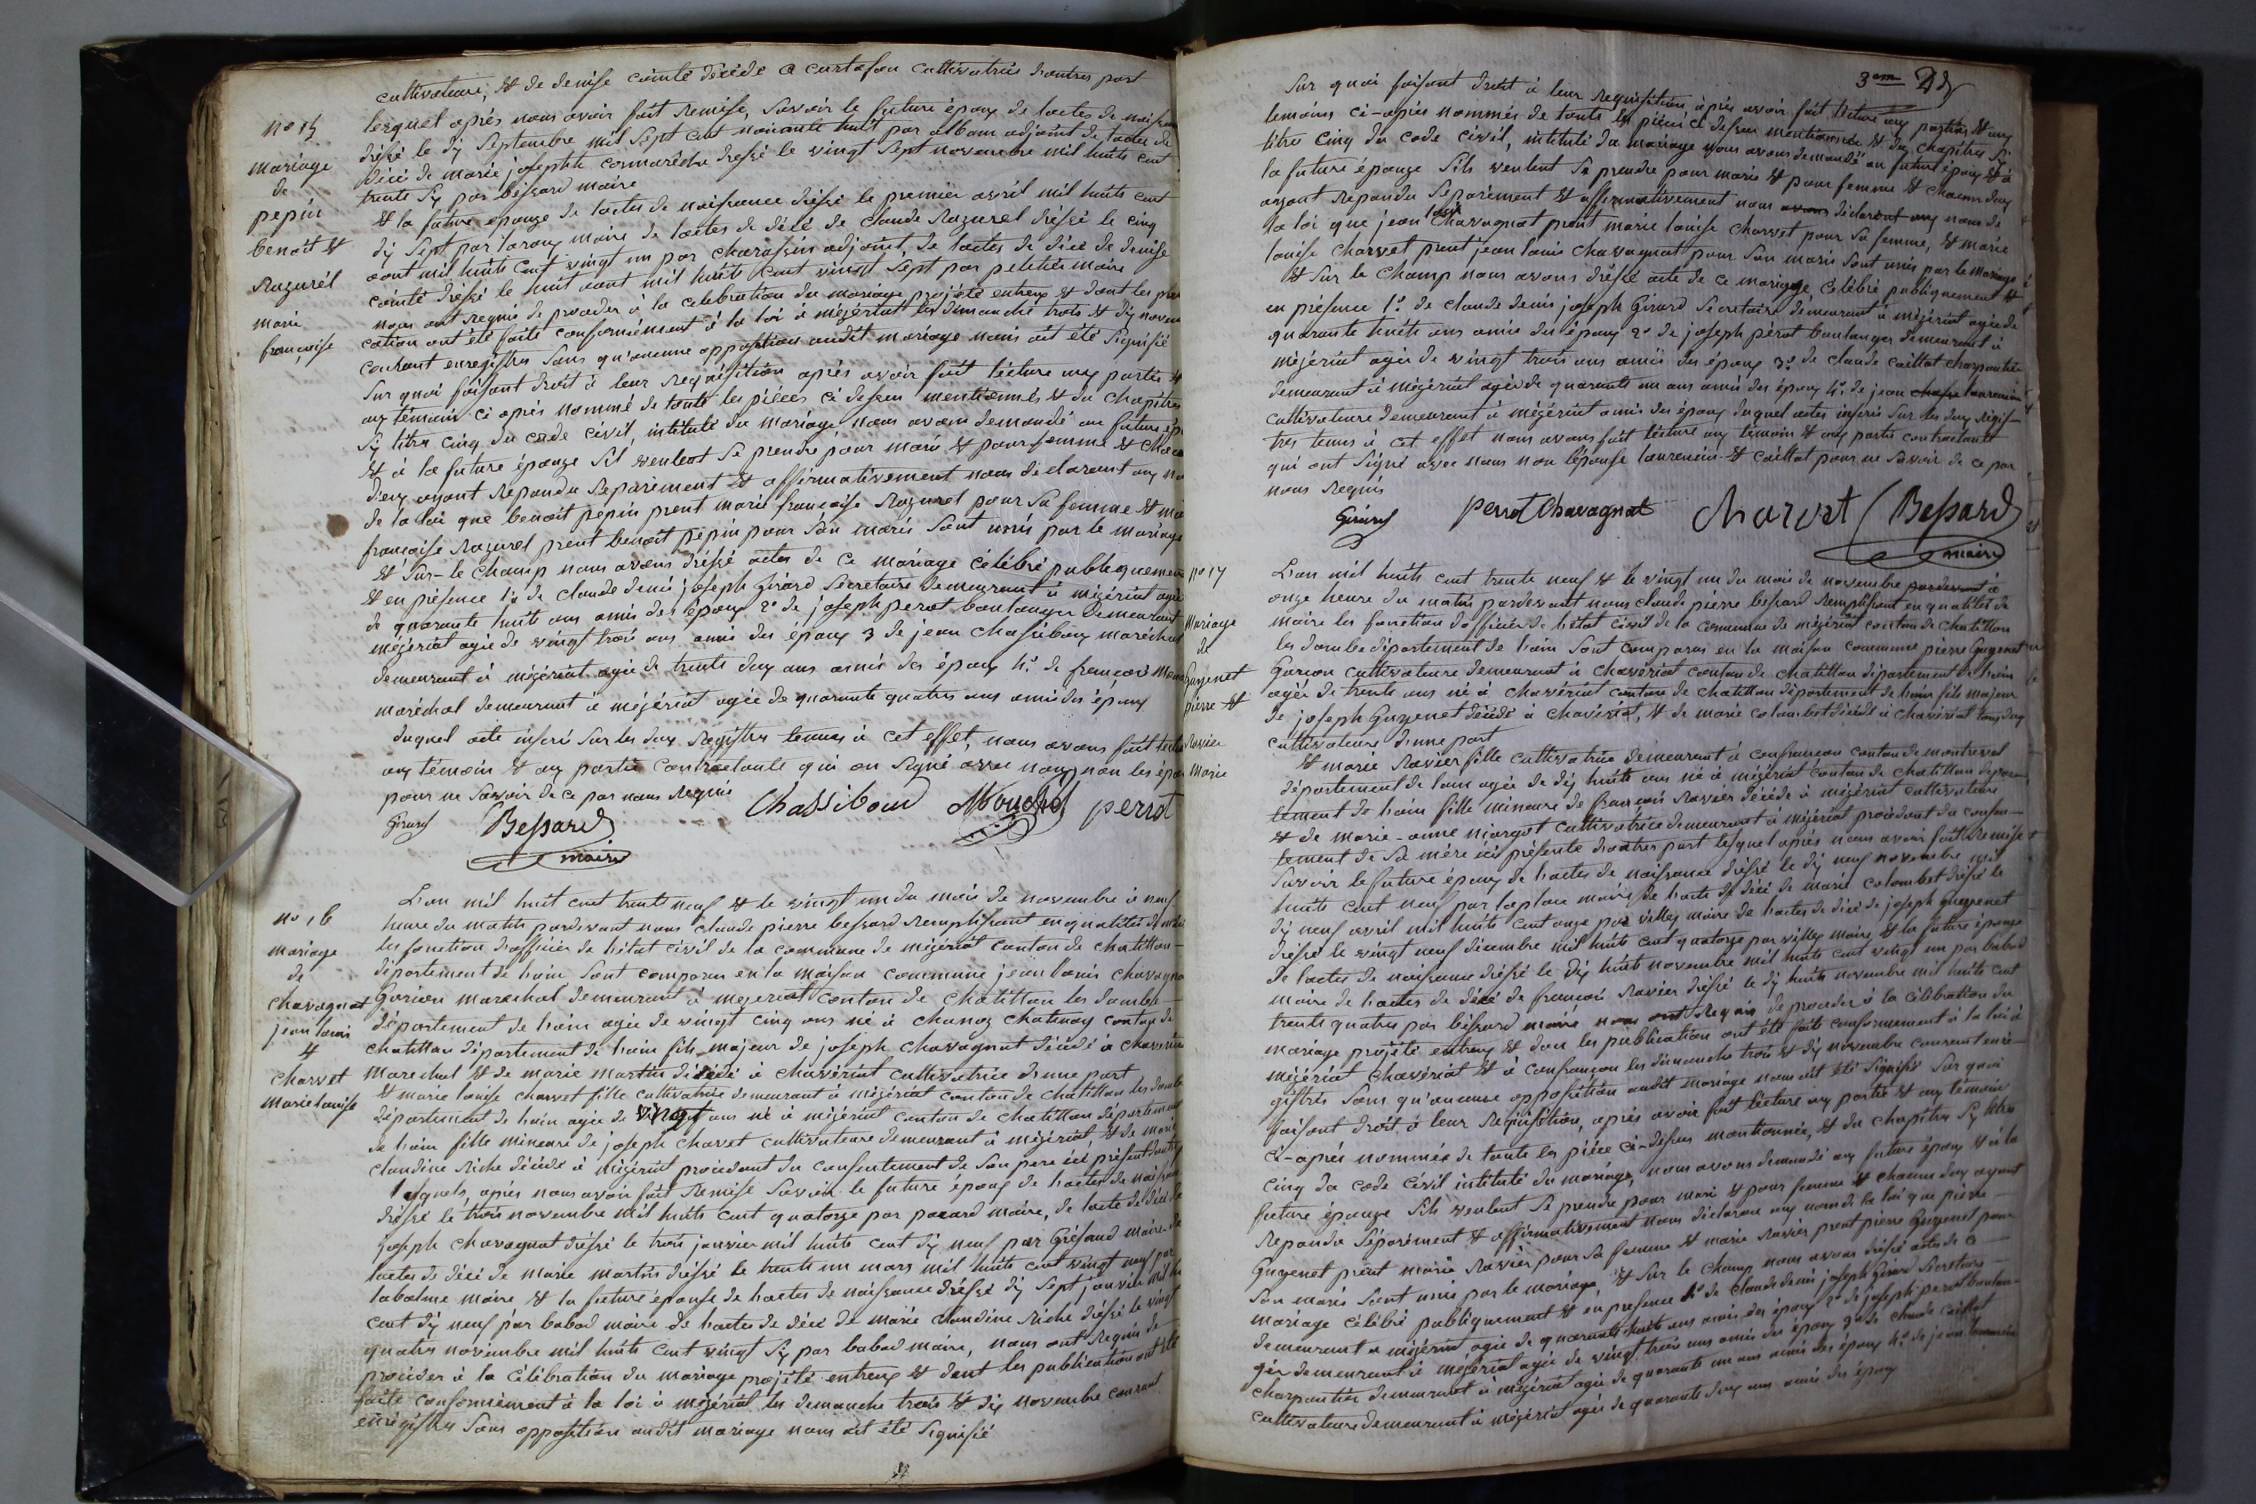 cultivateure, & de denise comte décédé a curtafon cultivatrice d'autres part
no 15
mariage
de
pepin
benoit &
Razurel
marie
françoise
lesquel après nous avoir fait remise, savoir le future époux de lactes de naissan
dréssé le dix Septembre mil Sept cent nonante huit par alban adjoint de lactes de
décé de marie josephte cormarèche dressé le vingt Sept novembre mil huits cent
trente Six par béssard maire
& la future epouze de lactes de naissance dréssé le premier avril mil huits cent
dix Sept par laroux maire de lactes de décé de claude Razurel dréssé le cinq
aout mil huits cent vingt un par charassin adjoint, de lactes de décé de denise
comte dréssé le huit aout mil huits cent vingt Sept par petitier maire
nous ont requis de proceder à la celebration du mariage projété entreux & dont les publi
cation ont été faite conformément à la loi à mézériat les dimanche trois & dix novem
courant enregistres Sans qu'aucune opposition audit mariage nous ait été Signifié
Sur quoi faisant droit à leur requisition après avoir fait lécture aux partis &
aux témoin ci après nommé de toute les pièces ci dessu mentionnés & du chapitres
Six titre cinq du code civil, intitulé du mariage nous avons demandé au future ép
& à la future épouze Sil veulent Se prendre pour mari & pour femme & chacu
d'eux ayant repondu Separément & affirmativement nous déclaront aux no
de la loi que benoit pépin prent marie françoise Razurel pour Sa femme & ma
françoise Razurel prent benoit pepin pour Son maris Sont unis par le mariage
& Sur-le champ nous avons dréssé actes de ce mariage célébré publiquement
& en présence 1º de claude denis joseph Girard Secretaire demeurant à mézériat agé
de quarante huits ans amis des époux 2º de joseph perrot boulanger demeurant
mézériat agée de vingt trois ans amis des époux 3 de jean chassibou maréchal
demeurant à mézériat agée de trente deux ans amis des époux 4º de françois Mou
maréchal demeurant à mézériat agée de quarante quatres ans amis des époux
duquel acte inseré Sur les deux Registres tenues à cet effet, nous avons fait lectu
aux témoin & aux partie contractante qui on Signé avec nous non les épou
pour ne Savoir de ce par nous requis
Girard Bessard maire Chassiboud Mouchet perrot
no 16
mariage
de
chavagnat
jean louis
&
charvet
marie louise
L'an mil huit cent trente neuf & le vingt un du mois de novembre à neuf
heure du matin pardevant nous claude pierre bessard remplissant en qualités de mai
les fonction d'officier de létat civil de la commune de mézériat canton de chatillon
département de lain Sont comparus en la maison commune jean louis chavagna
Garçon marechal demeurant à mezeriat canton de chatillon les dombe
département de lain agée de vingt cinq ans né à chanoz chatenay canton de
chatillon département de lain fils majeur de joseph chavagnat décédé à chaveria
marechal & de marie martin décédé à chavériat cultivatrice d'une part
& marie louise charvet fille cultivatrice demeurant à mézériat canton de chatillon les dombe
département de lain agée de vingt ans né à mézériat canton de chatillon départeme
de lain fille mineure de joseph charvet cultivateure demeurant à mézériat, & de marie
claudine Riche décédé à mézériat procédant du consentement de Son pere ici présent d'autre
lesquels, après nous avoir fait remise Savoir le future époux de lactes de naissan
dréssé le trois novembre mil huits cent quatorze par pacard maire, de lacte de décé de
joseph chavagnat dréssé le trois janvier mil huits cent dix neuf par Gréfaud maire de
lactes de décé de marie martin dréssé le trente un mars mil huits cent vingt neuf par
labalme maire & la future épouse de lactes de naissance dréssé dix Sept janvier mil hu
cent dix neuf par babad maire de lactes de décé de marie claudine Riche dréssé le vingt
quatres novembre mil huits cent vingt Six par babad maire, nous ont requis de
procéder à la célébration du mariage projété entreux & dont les publication ont été
faite conformément à la loi à mézériat les dimanche trois & dix novembre courant
enregistres Sans opposition audit mariage nous ait été Signifié
3em
Sur quoi faisant droit à leur requisition après avoir fait lécture aux parties & aux
temoins ci-après nommés de toute les pièces ci dessu mentionnée & du chapitres Six
titre cinq du code civil, intitulé du mariage nous avons demandé au future époux & à
la future épouze Sils veulent Se prendre pour marie & pour femme & chacun deux
ayant repondu Separément & affirmativement nous avons déclaront aux nom de
la loi que jean louis chavagnat prent marie louise charvet pour Sa femme, & marie
louise charvet prent jean louis chavagnat pour Son maris Sont unis par le mariage
& Sur le champ nous avons dréssé acte de ce mariage célébré publiquement &
en présence 1º de claude denis joseph Girard Secretaire demeurant à mézériat agé de
quarante huits ans amis des époux 2º de joseph pérot boulanger demeurant à
mézériat agée de vingt trois ans amis des époux 3º de claude caillat charpentier
demeurant à mézériat agée de quarante un ans amis des époux 4º de jean chasse laurencin
cultivateure demeurant à mézériat amis des époux duquel actes inserés Sur les deux régis-
tres tenus à cet effet nous avons fait lécture aux témoin & aux partie contractante
qui ont Signé avec nous non lépouse laurencin & caillat pour ne Savoir de ce par
nous requis
Girard perrot Chavagnat Charvet Bessard maire
no 17
Mariage
de
Guyenet
pierre &
Ravier
Marie
L'an mil huits cent trente neuf & le vingt un du mois de novembre pardevant à
onze heure du matin pardevant nous claude pierre bessard remplissant en qualités de
maire les fonction d'officier de létat civil de la commune de mézériat canton de chatillon
les dombe département de lain Sont comparus en la maison commune pierre Guyenet
Garçon cultivateure demeurant à chavériat canton de chatillon département de lain
agée de trente ans né à chavériat canton de chatillon département de lain fils majeur
de joseph Guyenet décédé à chavériat, & de marie colombet décédé à chavériat tous deux
cultivateure d'une part
& marie Ravier fille cultivatrice demeurant à confrançon canton de montrevel
département de lain agée de dix huits ans né à mézériat canton de chatillon dépar-
tement de lain fille mineure de françois Ravier décédé à mézériat cultivateure
& de marie-anne margot cultivatrice demeurant à mézériat procédant du consen-
tement de Sa mère ici présente d'autres part lesquel après nous avoir fait remise
Savoir le future époux de lactes de naissance dréssé le dix neuf novembre mil
huits cent neuf par laplace maire de lacte de décé de marie colombet dréssé le
dix neuf avril mil huits cent onze par villey maire de lactes de décé de joseph guyenet
dréssé le vingt neuf décembre mil huits cent quatorze par villey maire, & la future épouze
de lactes de naissance dréssé le dix huit novembre mil huits cent vingt un par babad
maire de lactes de décé de françois Ravier dréssé le dix huits novembre mil huits cent
trente quatres par béssard maire nous ont requis de proceder à la célébration du
mariage projété entreux & dont les publication ont été faite conformement à la loi à
mézériat chavériat & à confrançon les dimanche trois & dix novembre courent enre-
gistrés Sans qu'aucune opposition audit mariage nous ait été Signifié Sur quoi
faisant droit à leur requisition, après avoir fait lécture aux partie & aux témoin
ci-après nommée de toute les pièce ci-dessus mentionnée, & du chapitre Six titre
cinq du code civil intitulé du mariage, nous avons demandé aux future époux & à la
future épouze Sils veulent Se prendre pour mari & pour femme & chacun deux ayant
repondu Séparément & affirmativement nous déclaron aux nom de la loi que pierre
Guyenet prent marie Ravier pour Sa femme & marie Ravier prent pierre Guyenet pour
Son maris Sont unis par le mariage, & Sur le champ nous avons dréssé actes de ce
mariage célébré publiquement & en presence 1º de claude denis joseph Girard Secretaire
demeurant à mézériat agée de quarante huits ans amis des époux 2º de joseph perrot boulan-
ger demeurant à mézériat agée de vingt trois ans amis des époux 3º de claude caillat
charpentier demeurant à mézériat agée de quarante un ans amis des époux 4º de jean laurencin
cultivateure demeurant à mézériat agée de quarante deux ans amis des époux